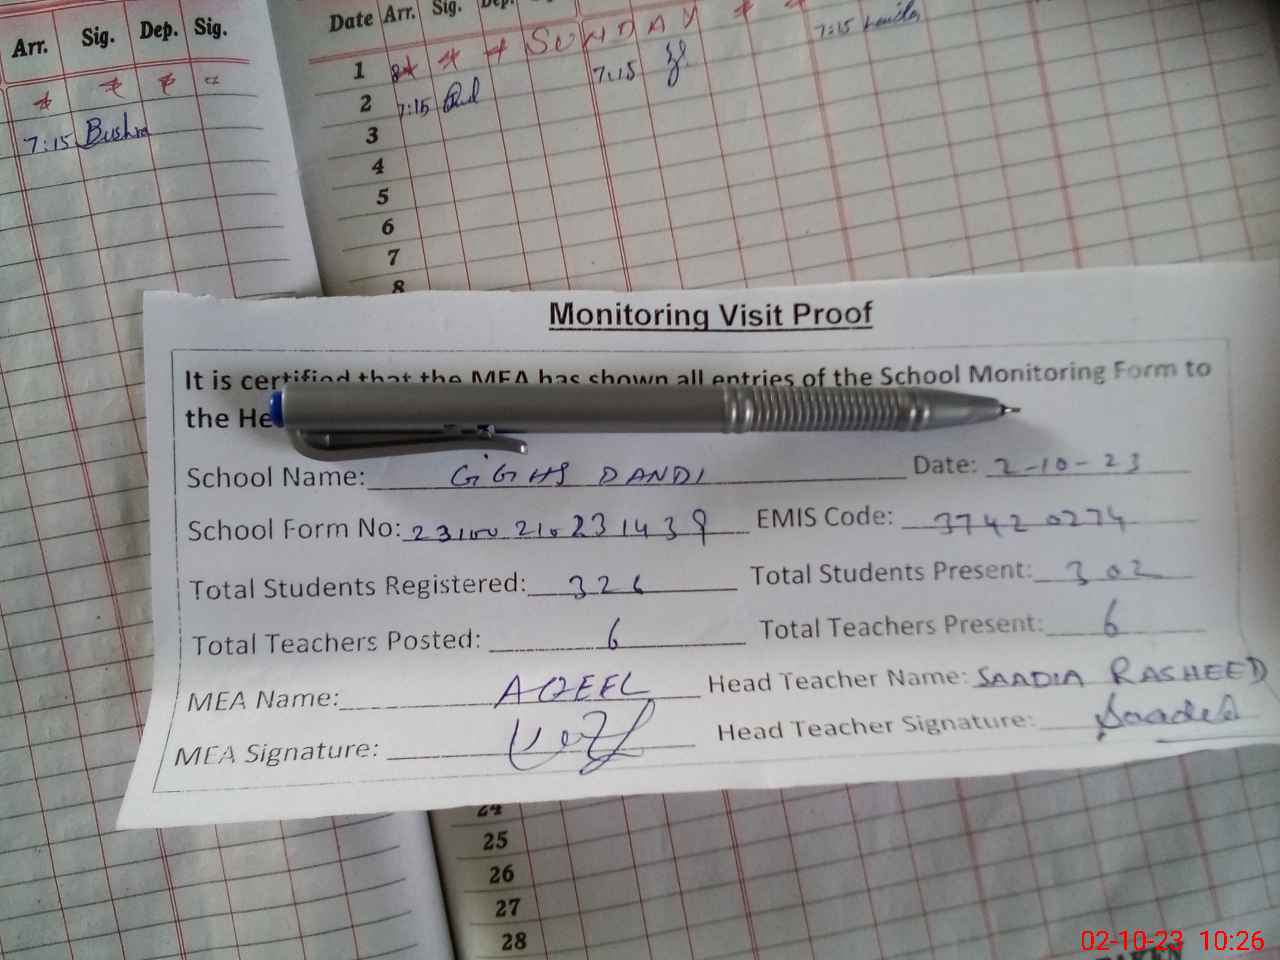 Arr. Sig. Dep. Sig.
7:15 Bushra
Date Arr. Sig. Dep.
1 * * * SUNDAY * *
2 7:15 7:15 7:15
3
4
5
6
7
8
Monitoring Visit Proof
It is certified that the MEA has shown all entries of the School Monitoring Form to
the He
School Name: GGHS DANDI Date: 2-10-23
School Form No: EMIS Code: 37420274
Total Students Registered: 326 Total Students Present: 302
Total Teachers Posted: 6 Total Teachers Present: 6
MEA Name: AQEEL Head Teacher Name: SAADIA RASHEED
MEA Signature: Head Teacher Signature: Saadia
24
25
26
27
28
02-10-23 10:26